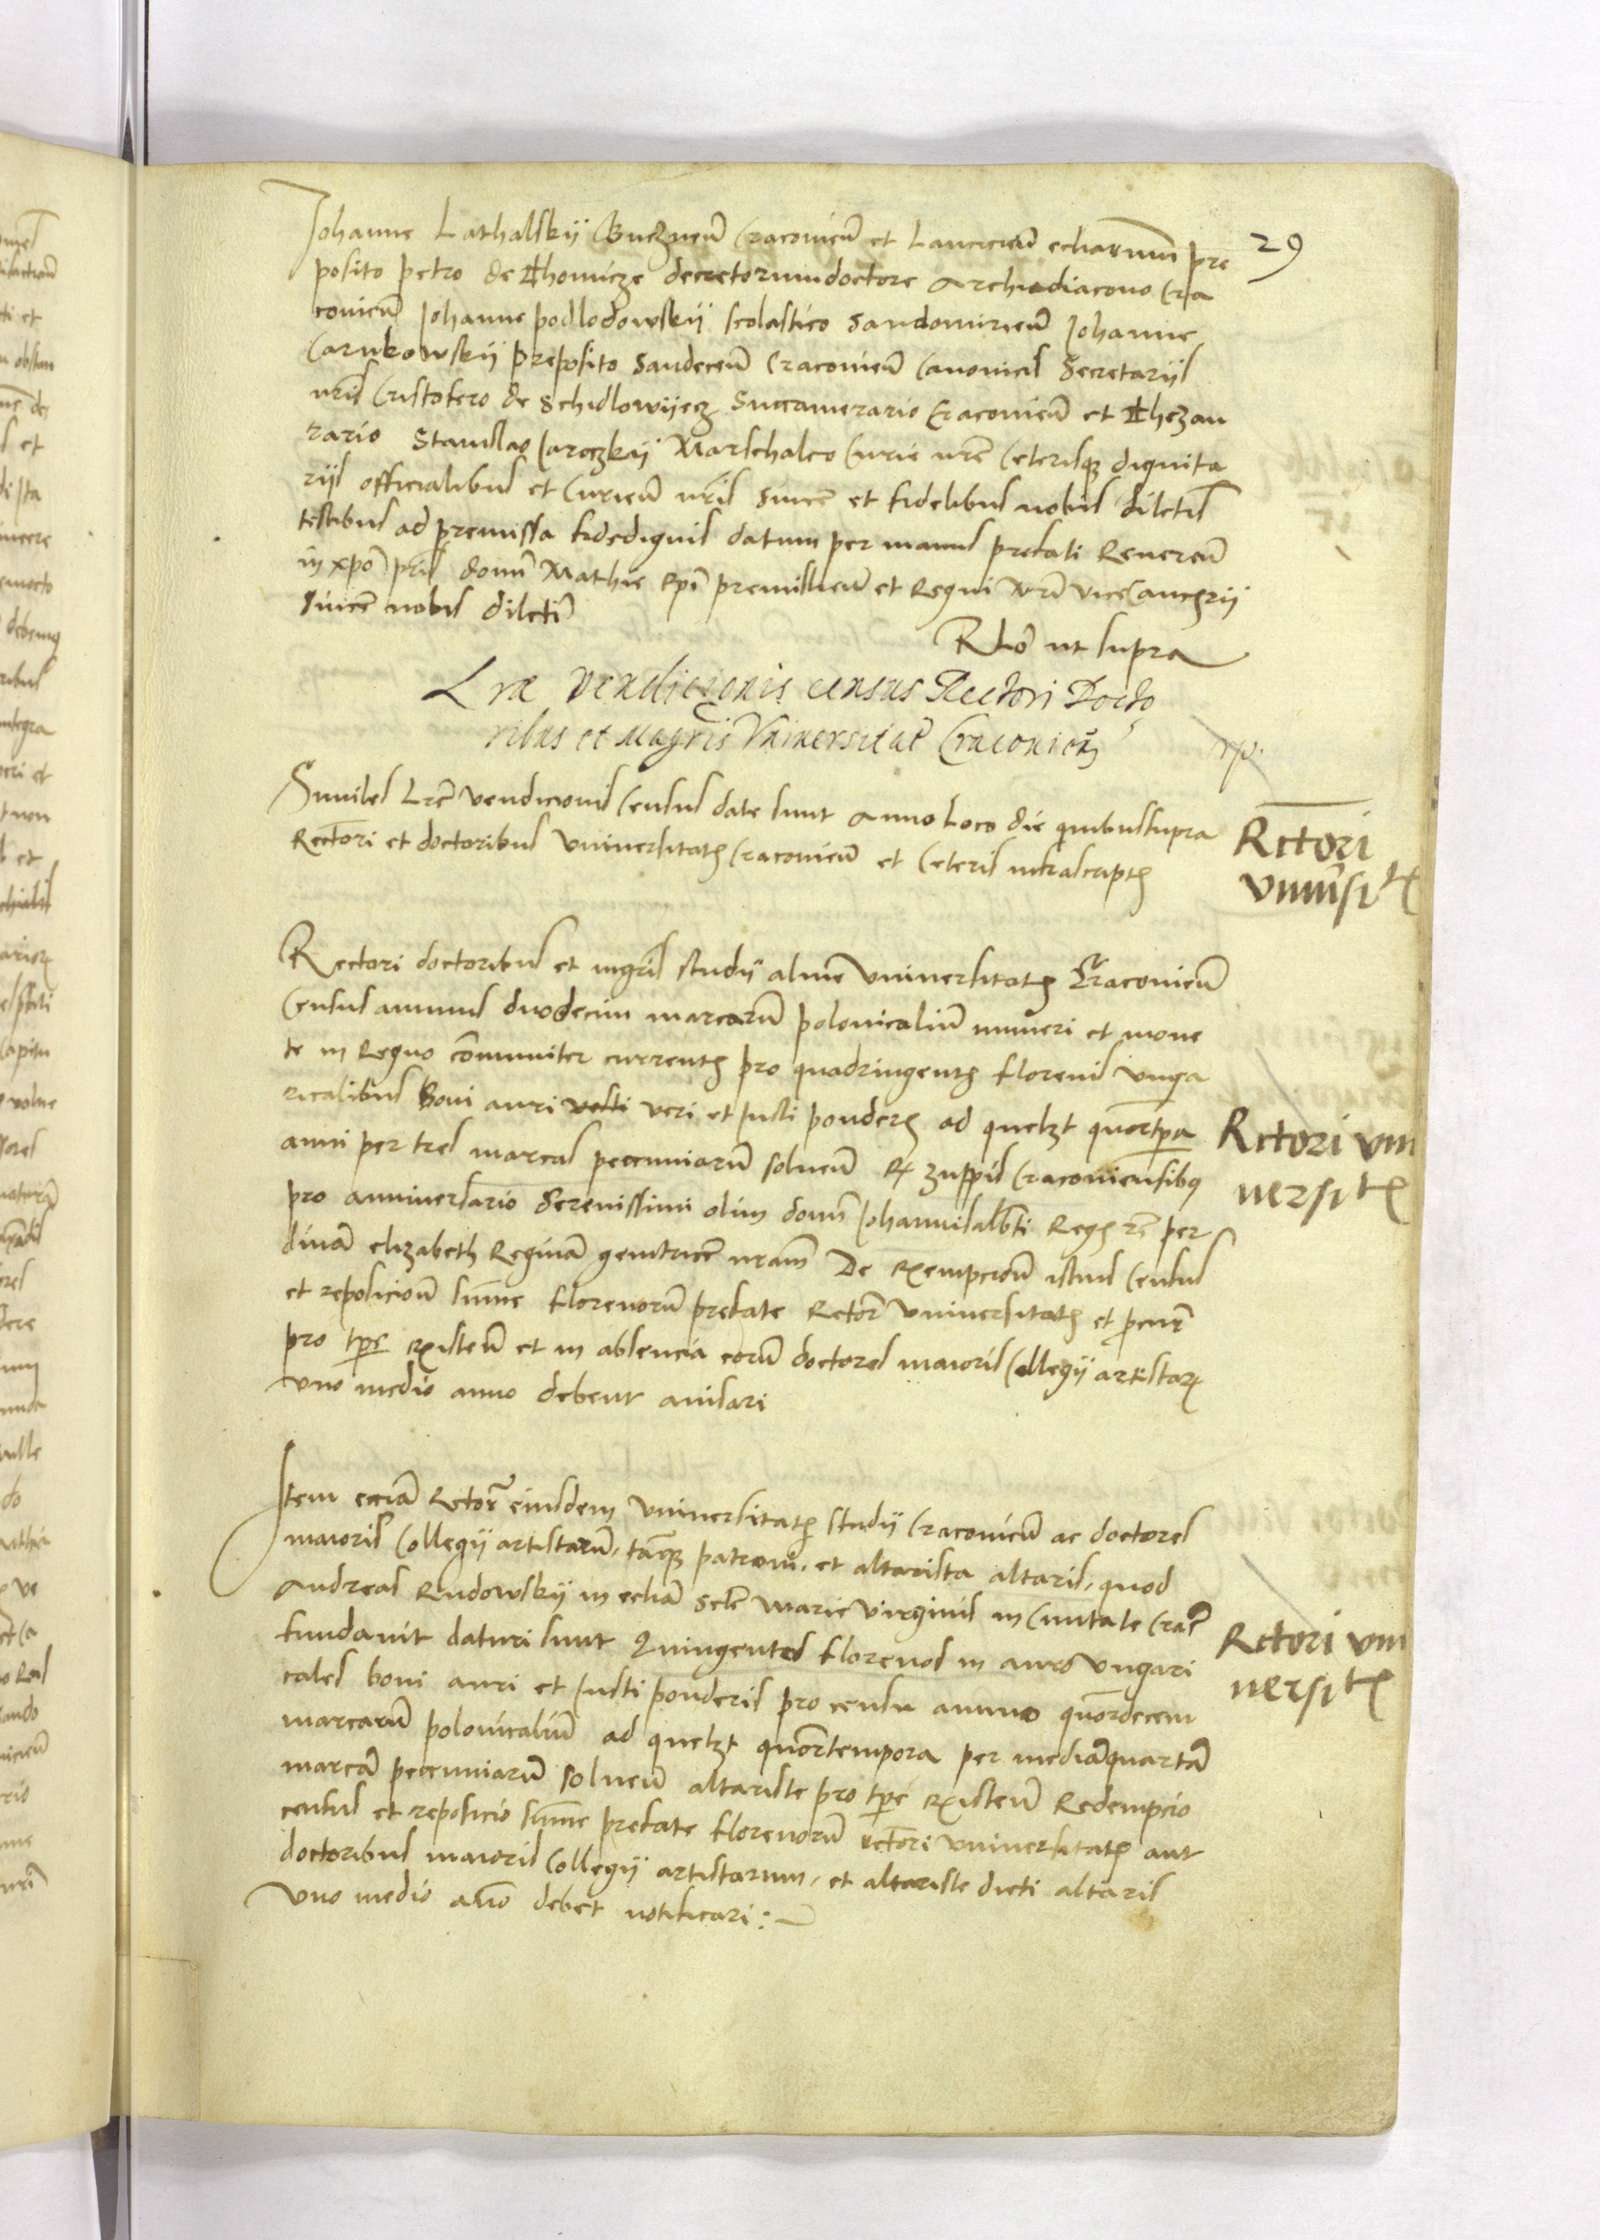 29
Johanne Lathalskÿ Gneznen̄ Cracovien̄ et Lancicien̄ ecclīarum pre
posito petro de Thomicze decretorum doctore Archidiacono Cra
covien̄ Johanne podlodowskÿ scolastico Sandomirien̄ Johanne
Carnkowskÿ preposito Sandecen̄ Cracovien̄ Canonicis Secretarÿs
nrīs Cristofero de Schidlowÿecz Succamerario Cracovien̄ et Thezau
rario Stanislao Jaroczkÿ Marschalco Curie nrē Ceterisqz dignita
rÿs officialibus et Curien̄ nrīs sincē et fidelibus nobis dilctis
testibus ad premissa fidedignis datum per manus prefati Reveren̄
in xpō prīs domī Mathie Epī premislien̄ et Regni Nrī viceCancrÿ
sincē nobis dilctī
Rlō ut supra
Lræ Vendicionis census Rectori Docto
ribus et Magrīs Vniversitat̄ Cracovien̄
Similes Lrē vendicionis Census date sunt Anno Loco die quibus supra
Rectori et doctoribus vniversitatis Cracovien̄ et Ceteris infrascriptis
Rectori
vniūsitis
Rectori doctoribus et mgrīs studÿ alme vniversitatis Cracovien̄
Census annuus duodecim marcarū polonicaliū numeri et mone
te in Regno cōmuniter currentis pro quadringentis florenis vnga
ricalibus boni auri vesti veri et Justi ponderis ad quelzt quortpa
anni per tres marcas pecuniarū solven̄ Ex zuppis Cracoviensibus
pro anniversario Serenissimi olim domī Johannisalbti Regis rē per
divā elizabeth Reginā genitricē nram̄ De Exempcion̄ istius Census
et reposicion̄ sum̄e florenorū prefate Rector̄ vniversitatis et procur̄
pro tpē existen̄ et in absencia eorū doctores maioris Collegÿ artistarum
vno medio anno debent avisari
Rectori vni
versitis
Item eciā Rector̄ eiusdem vniversitatis studÿ Cracovien̄ ac doctores
maioris Collegÿ artistarū, tāqz patroni, et altarista altaris, quod
Andreas Rudowskÿ in ecclīa Sctē Marie virginis in Civitate Crac̄
fundavit daturi sunt Quingentos florenos in auro vngari
cales boni auri et Justi ponderis pro censu annuo quordecem
marcarū polonicaliū ad quelzt quortempora per mediāquartā
marcā pecuniarū solven̄ altariste pro tpē existen̄ Redempcio
census et reposicio sum̄e prefate florenorū Rectori vniversitatis aut
doctoribus maioris Collegÿ artistarum, et altariste dicti altaris
vno medio an̄o debet notificari :~
Rectori vni
versitis